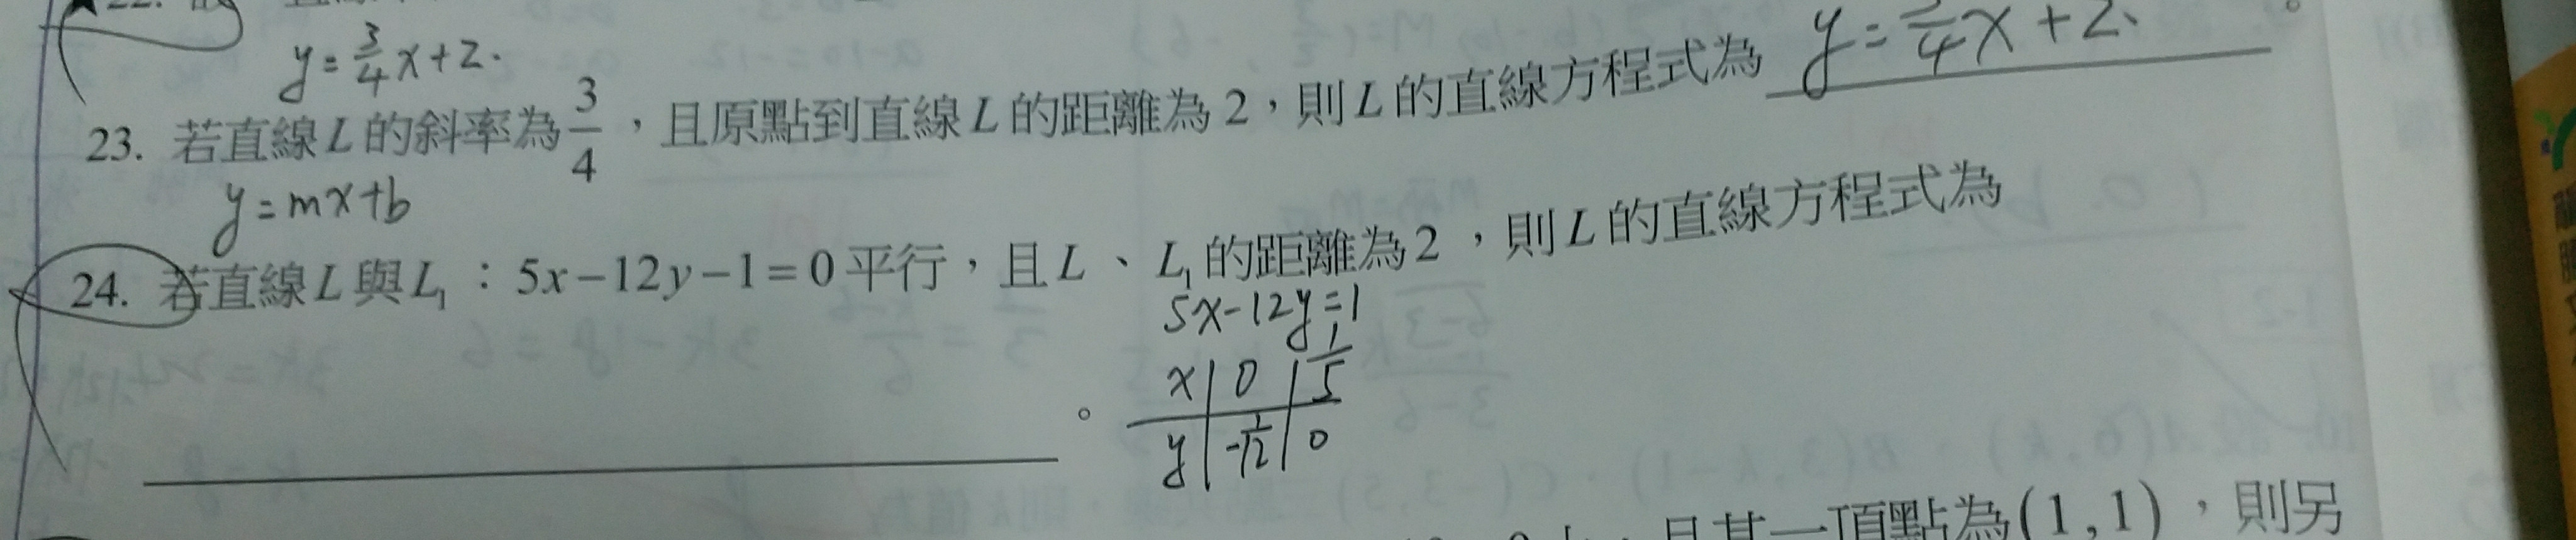 22.
y=3/4x+2.
y=3/4x+2.
23. 若直線L的斜率為3/4，且原點到直線L的距離為2，則L的直線方程式為
y=mx+b
24. 若直線L與L₁：5x−12y−1=0平行，且L、L₁的距離為2，則L的直線方程式為
5x-12y=1
x | 0 | 1/5
。
y | -1/12 | 0
且其一頂點為(1,1)，則另